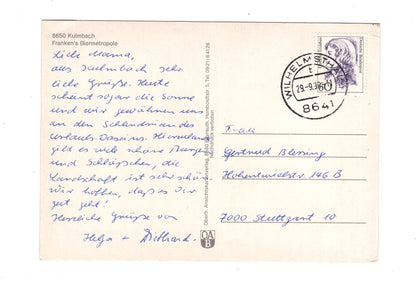 8650 Kulmbach
Franken's Biermetropole
Liebe Mama,
aus Kulmbach sehr
liebe Grüße. Heute
scheint sogar die Sonne
und wir gewöhnen uns
an den Schlendrian des
Urlaubs Daseins. Hierzulande
gibt es viele schöne Burgen
und Schlößchen, die
Landschaft ist sehr schön.
Wir hoffen, daß es Dir
gut geht!
Herzliche Grüße von
Helga + Diethard.
WILHELMSTHAL
29.-9.
8641
60
Frau
Gertrud Blessing
Hohentwielstr 146 B
7000 Stuttgart 10
OAB